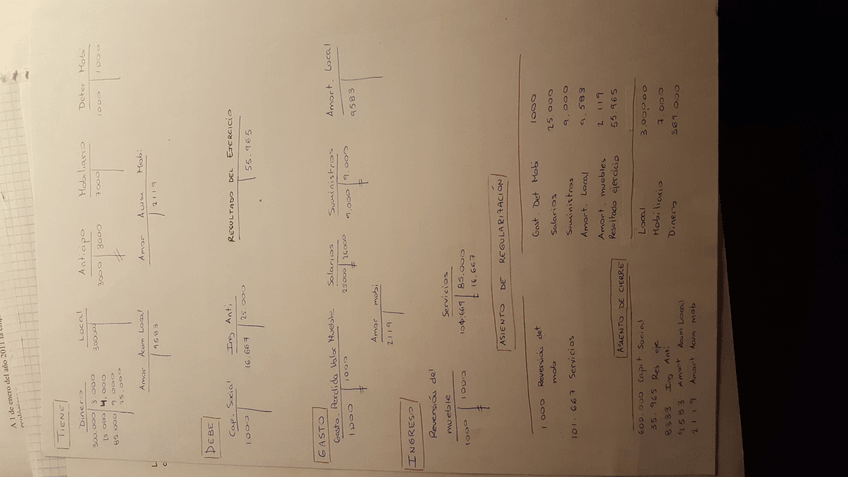 A 1 de enero del año 2011 la em
TIENE
Dinero
Local
Antropo
Mobiliario
Deter Mobi
3.000
4.000
9.000
25.000
85.000
3000 3000
7000
1000 1000
Amor Acum Local
9583
Amor Acum Mobi
2119
DEBE
Cap. Social
Ing Anti
RESULTADO DEL EJERCICIO
1000
16.667 25 000
55.965
GASTO
Gasto. Perdida Valor Mueble
Salarios
Suministros
Amort. Local
1000 1000
9,000 9.000
9583
Amor mobi
2119
INGRESO
Reversión del
mueble
Servicios
1000 1000
85.000
16.667
ASIENTO DE REGULARIZACIÓN
1 000 Reversión det
mob
101 667 Servicios
Gast. Det Mob 1000
Salarios 25.000
Suministros 9.000
Amort. Local 9.583
Amort. muebles 2 119
Resultado ejercicio 55 965
ASIENTO DE CIERRE
600.000 Capit Social
55.965 Res eje
8333 Ing Anti
9583 Amort Acum Local
2119 Amort Acum mob
Local 300,000
Mobiliario 7 000
Dinero 369 000